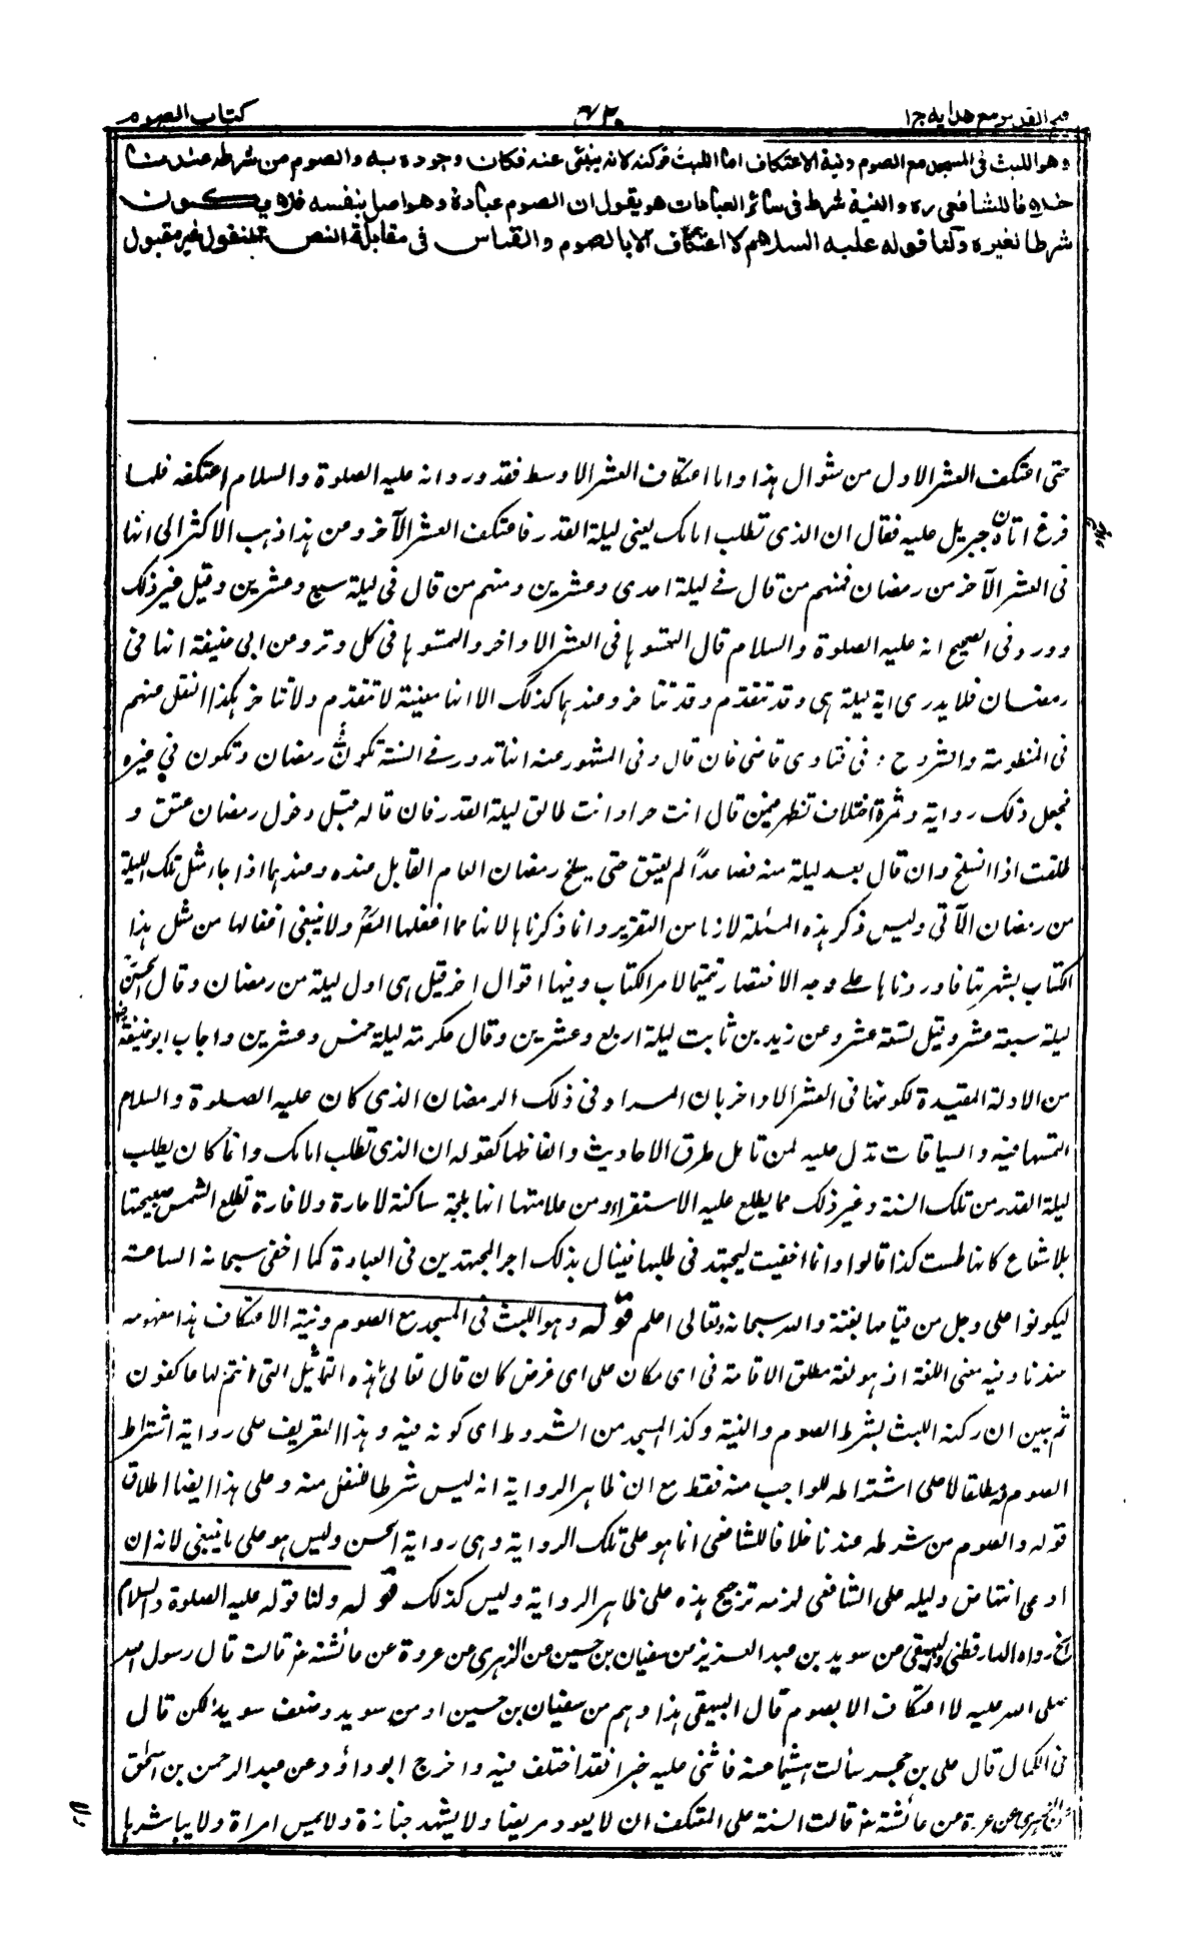 فتح القدير مع هدايه ج ١
٤٢٠
كتاب الصوم
وهو اللبث فى المسجد مع الصوم ونية الاعتكاف اما اللبث فركنه لانه ينبئى عنه فكان وجوده به والصوم من شرطه عندنا
خلافا للشافعى ره والنية شرط فى سائر العبادات هو يقول ان الصوم عبادة وهو اصل بنفسه فلا يكون
شرطا لغيره ولنا قوله عليه السلام لا اعتكاف الا بالصوم والقياس فى مقابلة النص المنقول غير مقبول
حتى اعتكف العشر الاول من شوال هذا واما اعتكاف العشر الاوسط فقد ورد انه عليه الصلوة والسلام اعتكفه فلما
فرغ اتاه جبريل عليه فقال ان الذى تطلب امامك يعنى ليلة القدر فاعتكف العشر الآخر ومن هذا ذهب الاكثر الى انها
فى العشر الآخر من رمضان فمنهم من قال فى ليلة احدى وعشرين ومنهم من قال فى ليلة سبع وعشرين وقيل غير ذلك
وورد فى الصحيح انه عليه الصلوة والسلام قال التمسوها فى العشر الاواخر والتمسوها فى كل وتر وعن ابى حنيفة انها فى
رمضان فلا يدرى اية ليلة هى وقد تتقدم وقد تتاخر وعندهما كذلك الا انها معينة لا تتقدم ولا تتاخر هكذا النقل عنهم
فى المنظومة والشروح وفى فتاوى قاضى خان قال وفى المشهور عنه انها تدور فى السنة تكون فى رمضان وتكون فى غيره
فجعل ذلك رواية وثمرة اختلاف تظهر فيمن قال انت حر او انت طالق ليلة القدر فان قاله قبل دخول رمضان عتق و
طلقت اذا انسلخ وان قال بعد ليلة منه فصاعدًا لم يعتق حتى ينسلخ رمضان العام القابل عنده وعندهما اذا جاء مثل تلك الليلة
من رمضان الآتى وليس ذكر هذه المسئلة لازما من التقرير وانما ذكرناها لانها مما اغفلها المص ولا ينبغى اغفالها من مثل هذا
الكتاب بشهرتها فاوردناها على وجه الاختصار تتميما لامر الكتاب وفيها اقوال اخر قيل هى اول ليلة من رمضان وقال الحسن
ليلة سبعة عشر وقيل تسعة عشر وعن زيد بن ثابت ليلة اربع وعشرين وقال عكرمة ليلة خمس وعشرين واجاب ابو حنيفة رض
من الادلة المقيدة لكونها فى العشر الاواخر بان المراد فى ذلك الرمضان الذى كان عليه الصلوة والسلام
التمسها فيه والسياقات تدل عليه لمن تامل طرق الاحاديث والفاظها كقوله ان الذى تطلب امامك وانما كان يطلب
ليلة القدر من تلك السنة وغير ذلك مما يطلع عليه الاستقراء ومن علامتها انها بلجة ساكنة لا حارة ولا قارة تطلع الشمس صبيحتها
بلا شعاع كانها طست كذا قالوا وانما اخفيت ليجتهد فى طلبها فينال بذلك اجر المجتهدين فى العبادة كما اخفى سبحانه الساعة
ليكونوا على وجل من قيامها بغتة والله سبحانه وتعالى اعلم قوله وهو اللبث فى المسجد مع الصوم ونية الاعتكاف هذا مفهومه
عندنا وفيه معنى اللغة اذ هو لغة مطلق الاقامة فى اى مكان على اى غرض كان قال تعالى ما هذه التماثيل التى انتم لها عاكفون
ثم بين ان ركنه اللبث بشرط الصوم والنية وكذا المسجد من الشروط اى كونه فيه وهذا التعريف على رواية اشتراط
الصوم له مطلقا لا على اشتراطه للواجب منه فقط مع ان ظاهر الرواية انه ليس شرطا للنفل منه وعلى هذا ايضا اطلاق
قوله والصوم من شرطه عندنا خلافا للشافعى انما هو على تلك الرواية وهى رواية الحسن وليس هو على ما ينبغى لانه ان
ادعى انتهاض دليله على الشافعى لزمه ترجيح هذه على ظاهر الرواية وليس كذلك قوله ولنا قوله عليه الصلوة والسلام
الخ رواه الدارقطنى والبيهقى عن سويد بن عبد العزيز عن سفيان بن حسين عن الزهرى عن عروة عن عائشة رض قالت قال رسول الله
صلى الله عليه لا اعتكاف الا بصوم قال البيهقى هذا وهم من سفيان بن حسين او من سويد وضعف سويد لكن قال
فى الكمال قال على بن حجر سألت هشيما عنه فاثنى عليه خيرا فقد اختلف فيه واخرج ابو داؤد عن عبد الرحمن بن اسحق
عن الزهرى عن عروة عن عائشة رض قالت السنة على المعتكف ان لا يعود مريضا ولا يشهد جنازة ولا يمس امراة ولا يباشرها